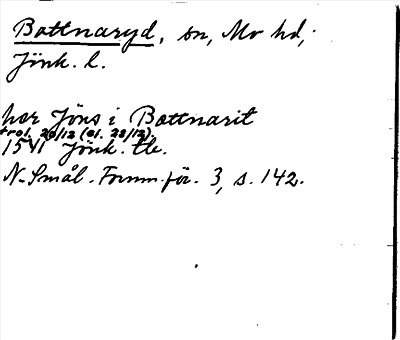 Bottnaryd, sn, Mo hd,
Jönk. l.
her Jöns i Bottnarit
trol. 20/12 (el. 28/12).
1541 Jönk. tb.
N. Smål. Fornm.för. 3, s. 142.